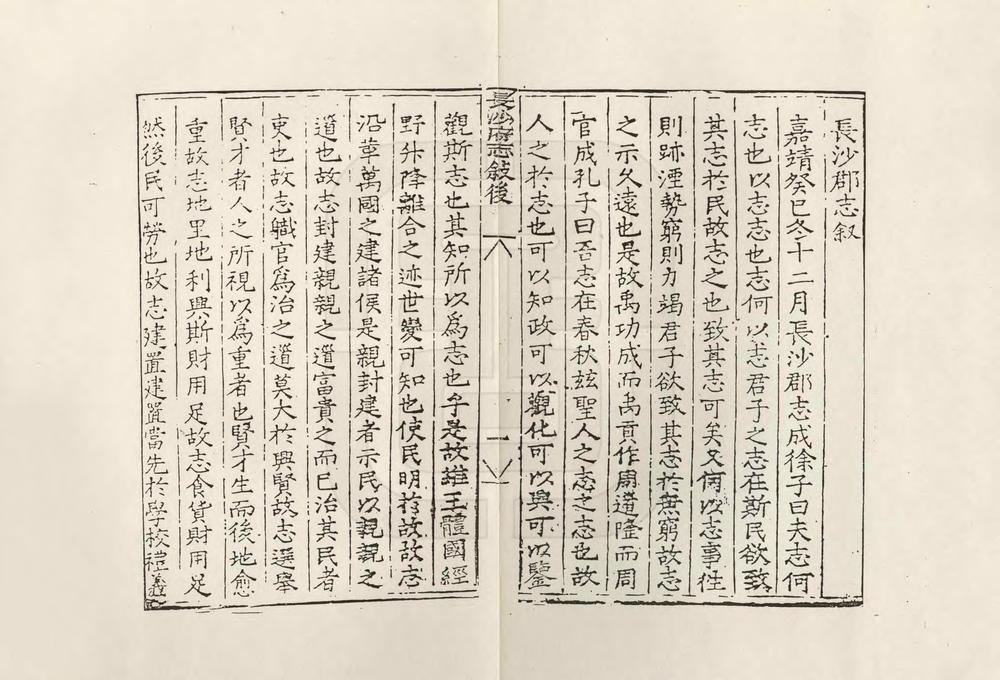 長沙郡志叙
嘉靖癸巳冬十二月長沙郡志成徐子曰夫志何
志也以志志也志何以志君子之志在斯民欲致
其志於民故志之也致其志可矣又何以志事徃
則跡湮勢窮則力竭君子欲致其志於無窮故志
之示久遠也是故禹功成而禹貢作周道隆而周
官成孔子曰吾志在春秋玆聖人之志之志也故
人之於志也可以知政可以觀化可以興可以鑒
長沙府志敘後
一
觀斯志也其知所以爲志也乎是故維王體國經
野升降離合之迹世變可知也使民明於故故志
沿革萬國之建諸侯是親封建者示民以親親之
道也故志封建親親之道富貴之而已治其民者
吏也故志職官爲治之道莫大於興賢故志選舉
賢才者人之所視以爲重者也賢才生而後地愈
重故志地里地利興斯財用足故志食貨財用足
然後民可勞也故志建置建置當先於學校禮義